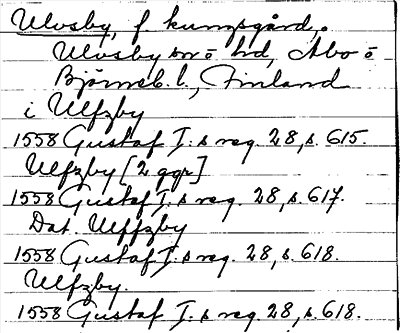 Ulvsby, f. kungsgård,
Ulvsby sn o hd, Åbo o
Björneb. l., Finland
i Ulfzby
1558 Gustaf I:s reg. 28, s. 615.
Ulfzby [2 ggr]
1558 Gustaf I:s reg. 28, s. 617.
Dat. Ulffzby
1558 Gustaf I:s reg. 28, s. 618.
Ulfzby.
1558 Gustaf I:s reg 28, s. 618.